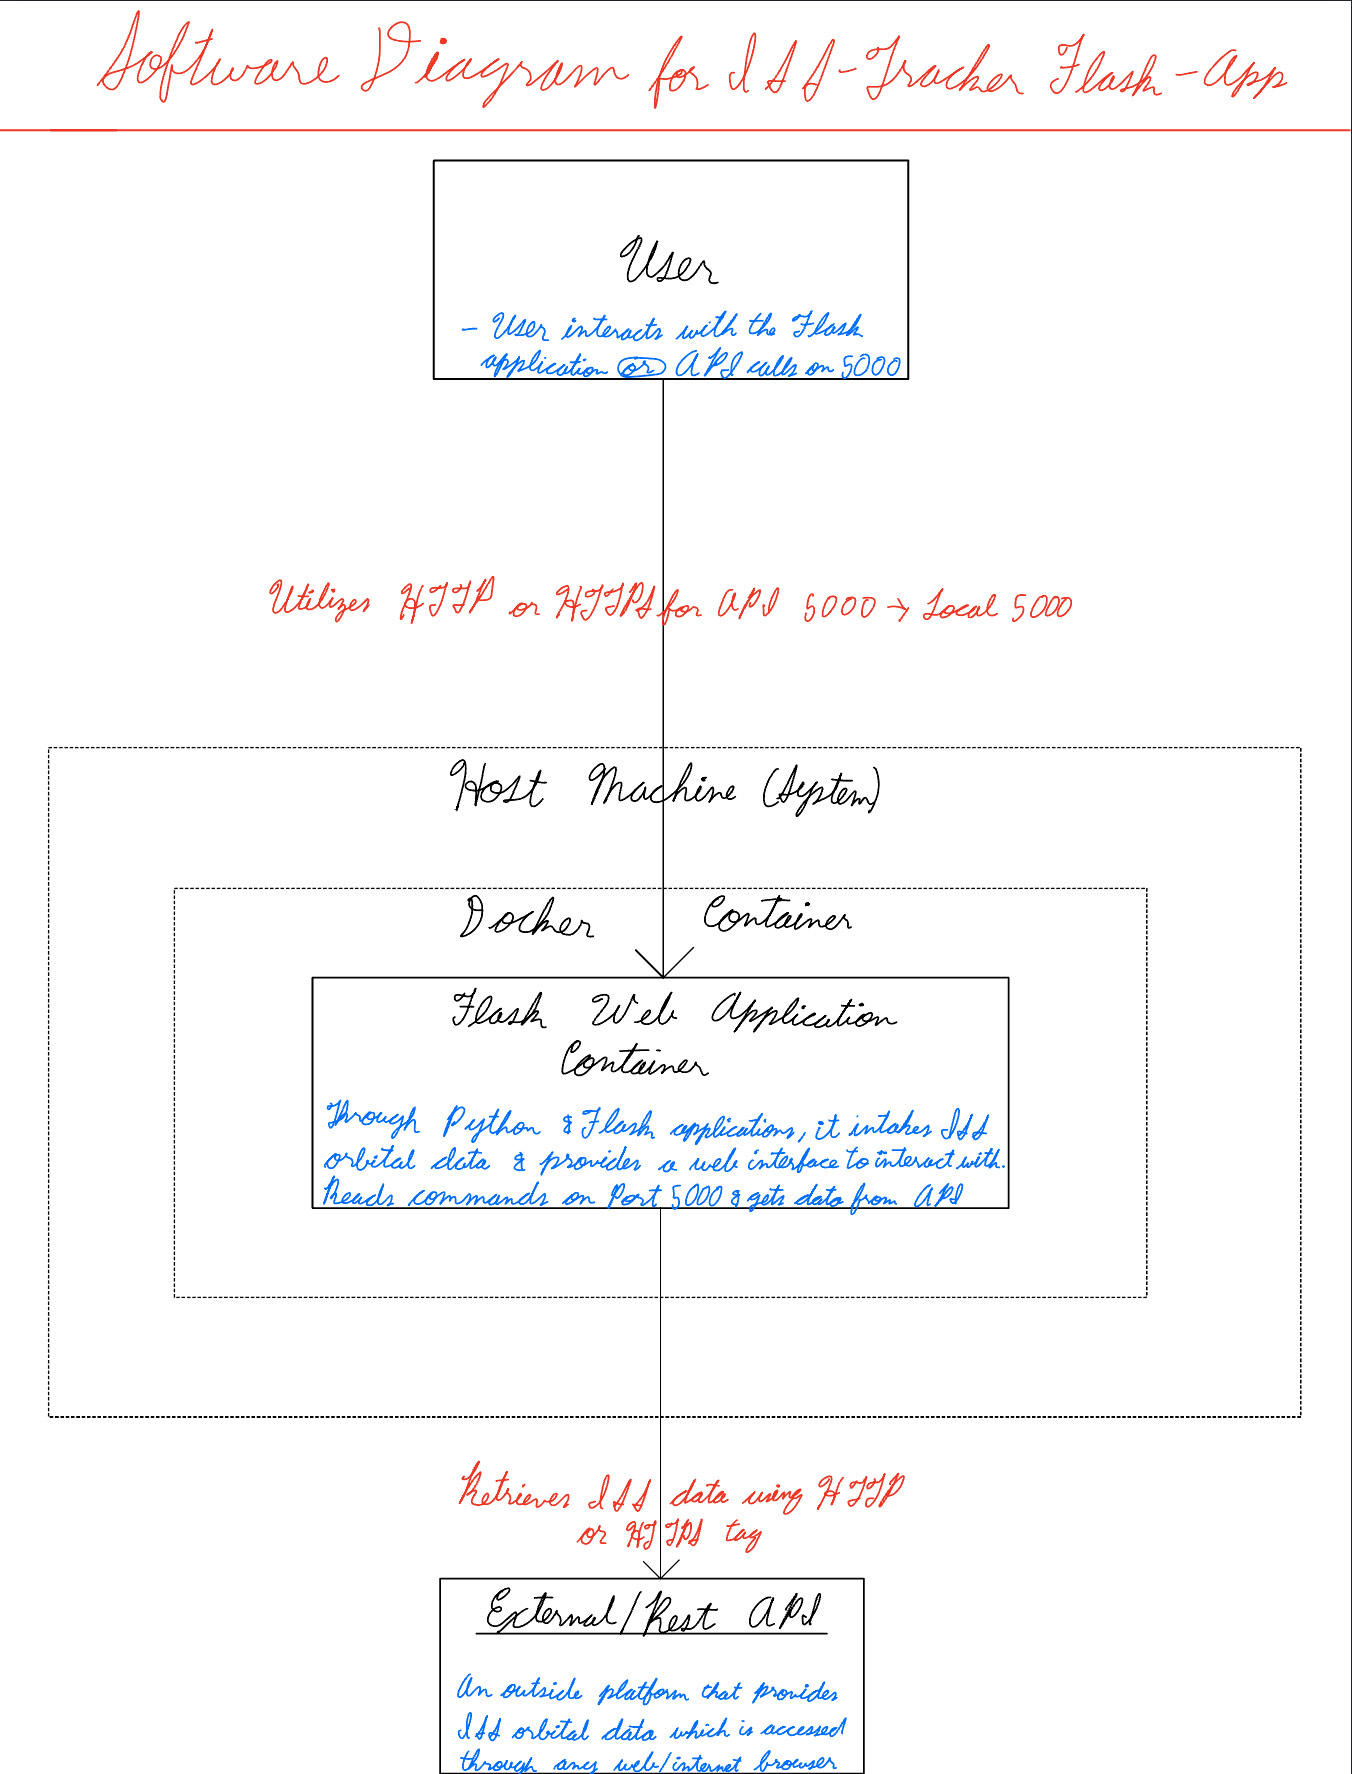 Software Diagram for ISS-Tracker Flask-App
User
- User interacts with the Flask
application or API calls on 5000
Utilizes HTTP or HTTPS for API 5000 → Local 5000
Host Machine (System)
Docker Container
Flask Web Application
Container
Through Python & Flask applications, it intakes ISS
orbital data & provides a web interface to interact with.
Reads commands on Port 5000 & gets data from API
Retrieves ISS data using HTTP
or HTTPS tag
External/Rest API
An outside platform that provides
ISS orbital data which is accessed
through any web/internet browser